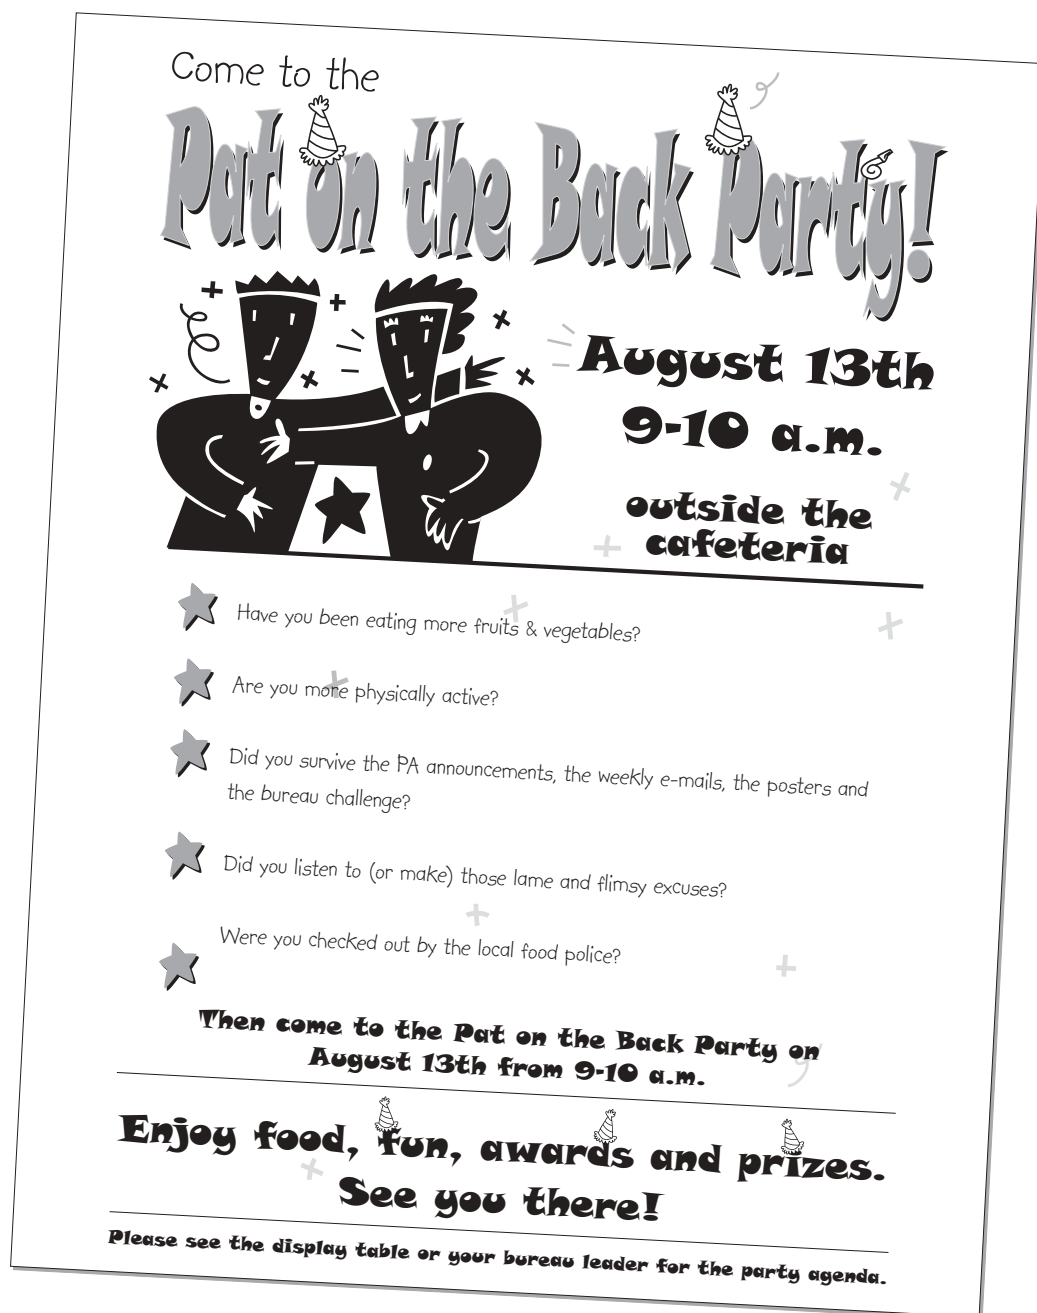 Come to the
Pat on the Back Party!
August 13th
9-10 a.m.
outside the
cafeteria
Have you been eating more fruits & vegetables?
Are you more physically active?
Did you survive the PA announcements, the weekly e-mails, the posters and
the bureau challenge?
Did you listen to (or make) those lame and flimsy excuses?
Were you checked out by the local food police?
Then come to the Pat on the Back Party on
August 13th from 9-10 a.m.
Enjoy food, fun, awards and prizes.
See you there!
Please see the display table or your bureau leader for the party agenda.